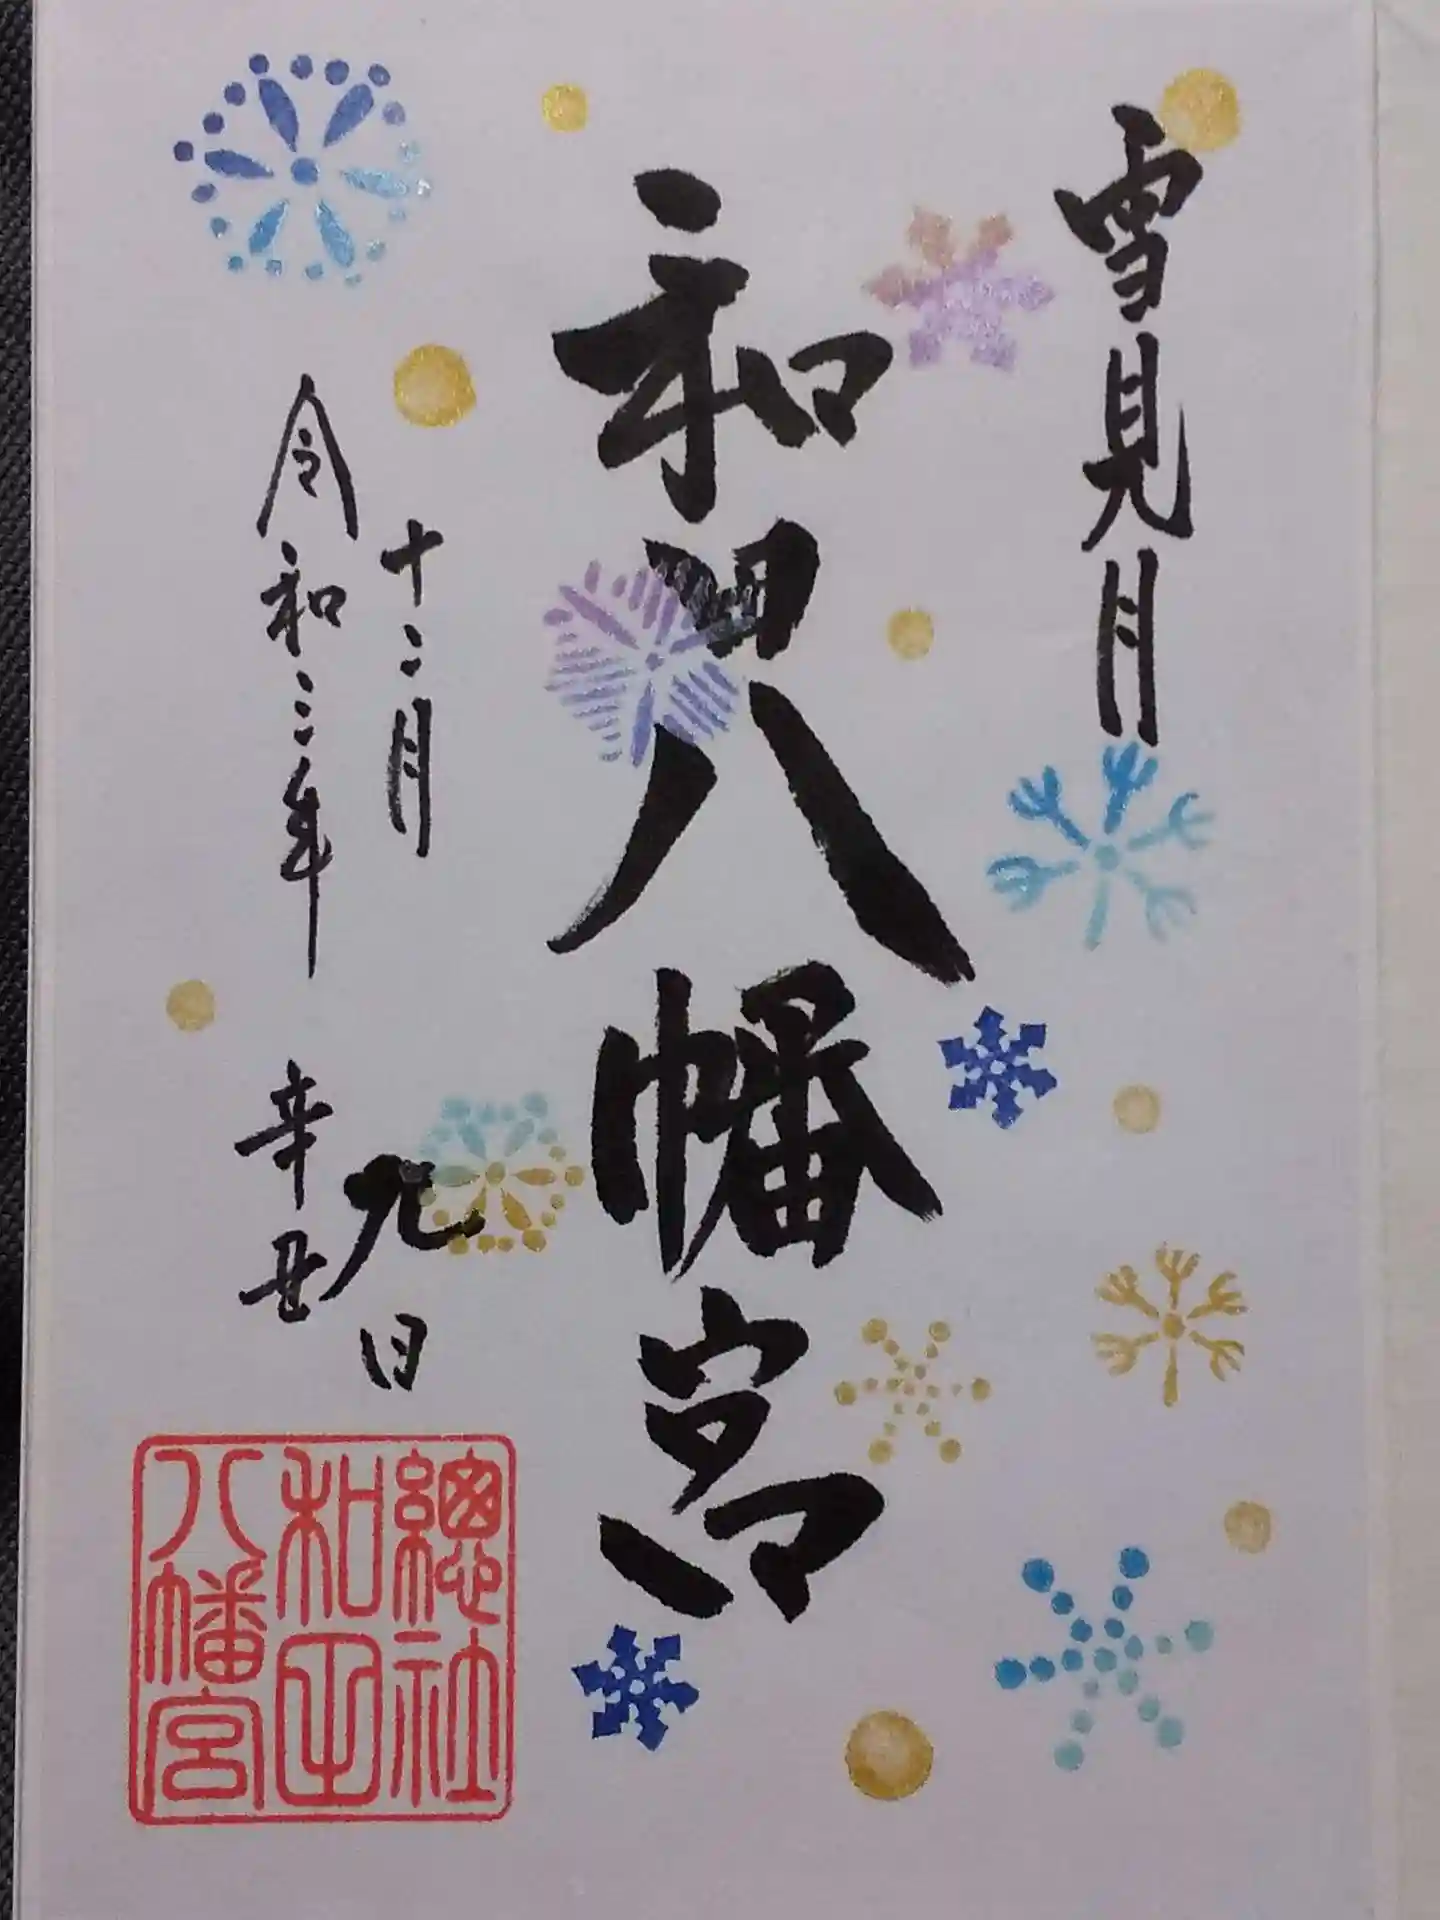 雪見月
和田八幡宮
十二月九日
令和三年 辛丑
總社
和田
八幡宮